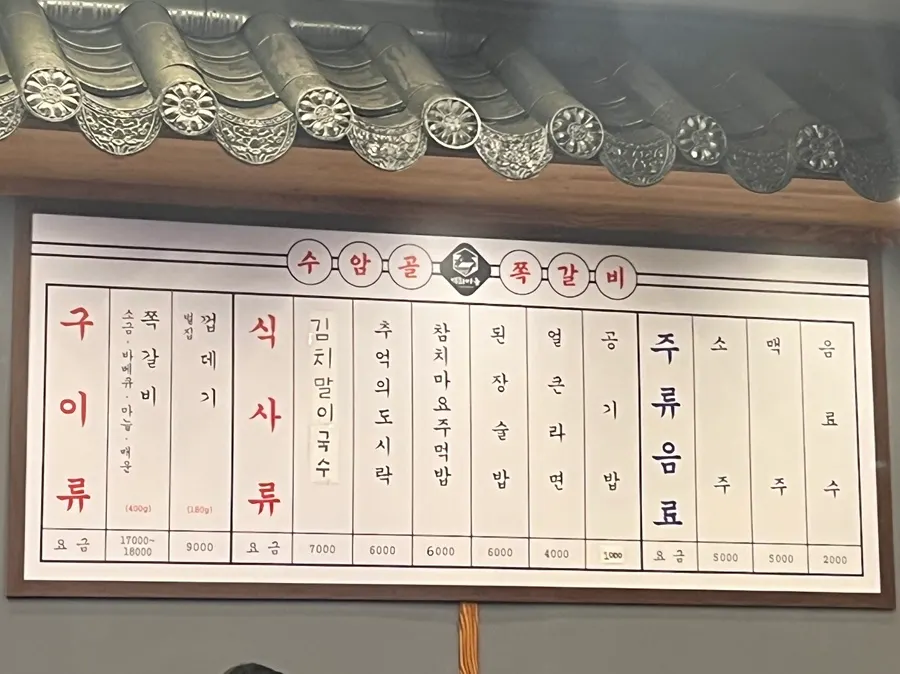 수암골 쪽갈비
구이류
요금
쪽갈비
소금·바베큐·마늘·매운
(400g)
17000~
18000
벌집
껍데기
(180g)
9000
식사류
요금
김치말이국수
7000
추억의도시락
6000
참치마요주먹밥
6000
된장술밥
6000
얼큰라면
4000
공기밥
1000
주류음료
요금
소주
5000
맥주
5000
음료수
2000